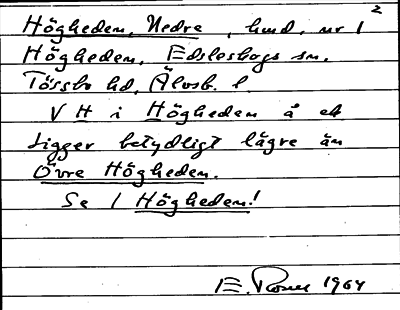 2
Högheden, Nedre, hmd. nr 1
Högheden, Edsleskogs sn.
Tössbo hd, Älvsb. l.
V H i Högheden å ek
Ligger betydligt lägre än
Övre Högheden.
Se 1 Högheden!
E. Rosell 1964